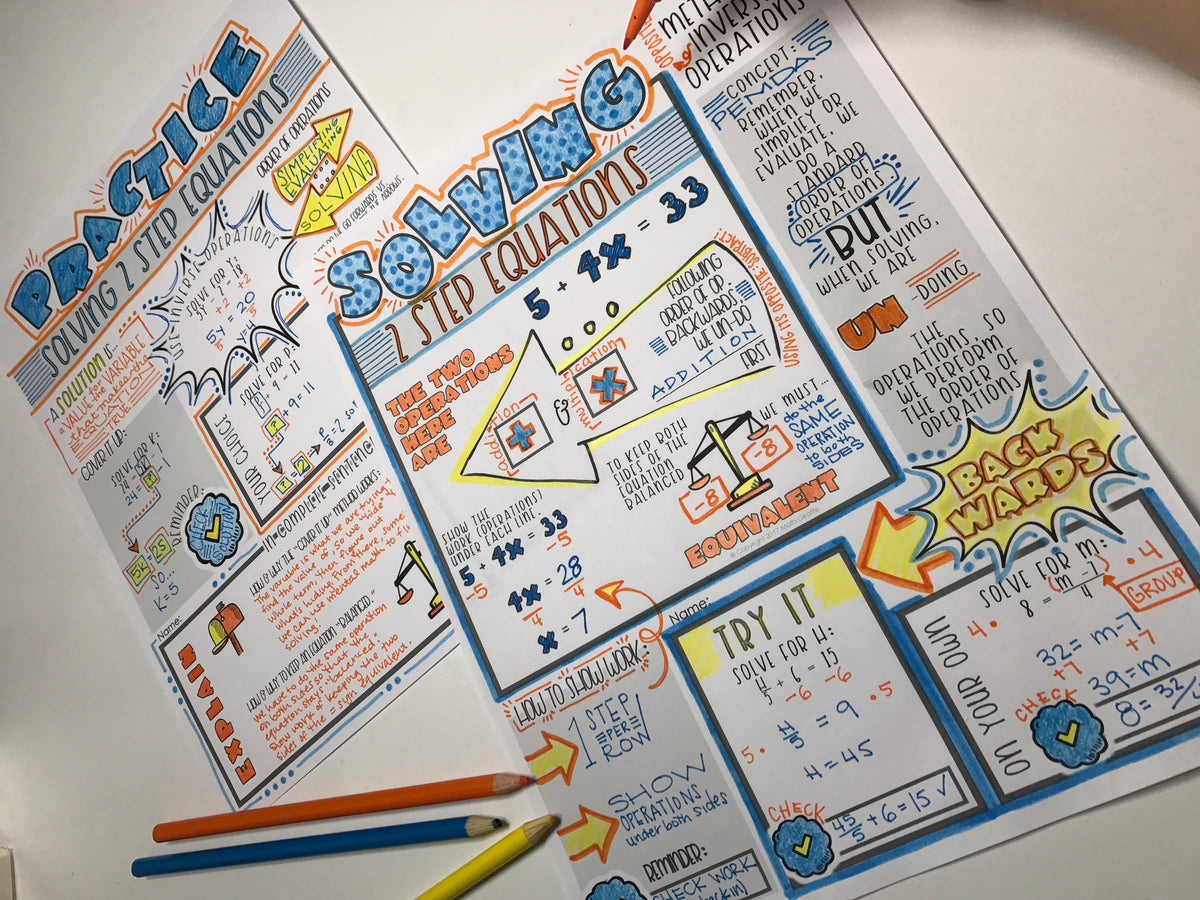 PRACTICE
SOLVING 2 STEP EQUATIONS
A SOLUTION IS...
a VALUE for
the VARIABLE
that makes the
EQUATION
TRUE
ORDER OF OPERATIONS
SIMPLIFYING
EVALUATING
SOLVING
WE GO FORWARDS VS.
THE ARROWS.
USE INVERSE OPERATIONS
SOLVE FOR Y:
+2 +2
5Y = 20
5 5
Y=4
COVER IT UP:
SOLVE FOR K:
24 = 5K - 1
24 = ? - 1
5K = 25
SO...
K = 5
REMINDER:
YOUR CHOICE
SOLVE FOR P:
+ 9 = 11
? + 9 = 11
? = 2
Name:
EXPLAIN
HOW & WHY THE "COVER IT UP" METHOD WORKS:
The variable is what we are trying
find the value of, so we "hide"
whole term, then figure out
what's hiding. From there, some
we can use mental math to fi
solving!
HOW & WHY TO KEEP AN EQUATION "BALANCED."
We have to do the same operation
on both sides so that the
equation stays "balanced" -
show work of keeping the two
sides of the = sign equivalent.
SOLVING
2 STEP EQUATIONS
5 + 4x = 33
THE TWO
OPERATIONS
HERE
ARE
addition
+
&
multiplication
×
FOLLOWING
ORDER OF OP
BACKWARDS
WE UN-DO
ADDITION
FIRST
USING ITS OPPOSITE: SUBTRACT!
TO KEEP BOTH
SIDES OF THE
EQUATION
BALANCED
-8
-8
WE MUST...
do the
SAME
OPERATION
to both
SIDES
EQUIVALENT
© Copyright 2017 Math Giraffe
SHOW THE
WORK (OPERATIONS)
UNDER EACH LINE -
5 + 4x = 33
-5 -5
4x = 28
4 4
x = 7
HOW TO SHOW WORK:
1 STEP
PER
ROW
SHOW
OPERATIONS
under both sides
REMINDER:
CHECK WORK
OPPOSITE
INVERSE
OPERATIONS
CONCEPT:
PEMDAS
REMEMBER,
WHEN WE
SIMPLIFY OR
EVALUATE, WE
DO A
STANDARD
ORDER OF
OPERATIONS
BUT
WHEN SOLVING,
WE ARE
UN
-DOING
THE
OPERATIONS SO
WE PERFORM
THE ORDER OF
OPERATIONS
BACK
WARDS
Name:
TRY IT
SOLVE FOR H:
H/5 + 6 = 15
-6 -6
5• H/5 = 9 •5
H = 45
CHECK
45/5 + 6 = 15 ✓
ON YOUR OWN
SOLVE FOR M:
4• 8 = (m - 7)/4 •4
GROUP
32 = m-7
+7 +7
39 = m
CHECK
8 = 32/